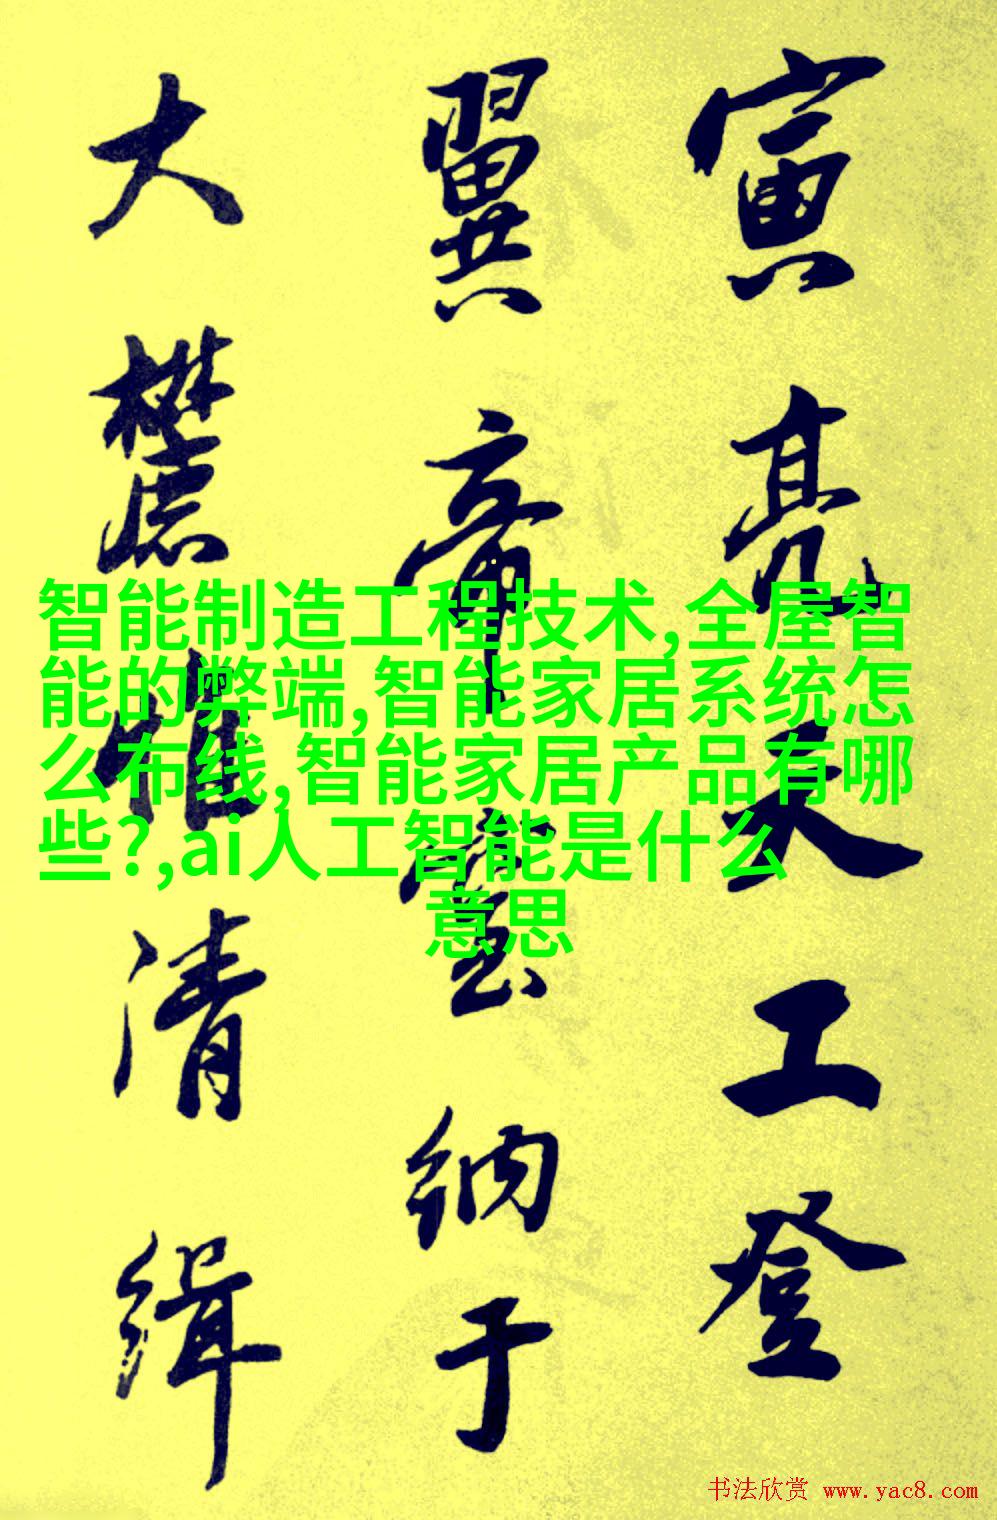 寅亮天工登
翼帝室纳于
大麓惟清缉
智能制造工程技术,全屋智
能的弊端,智能家居系统怎
么布线,智能家居产品有哪
些?,ai人工智能是什么
意思
书法欣赏 www.yac8.com